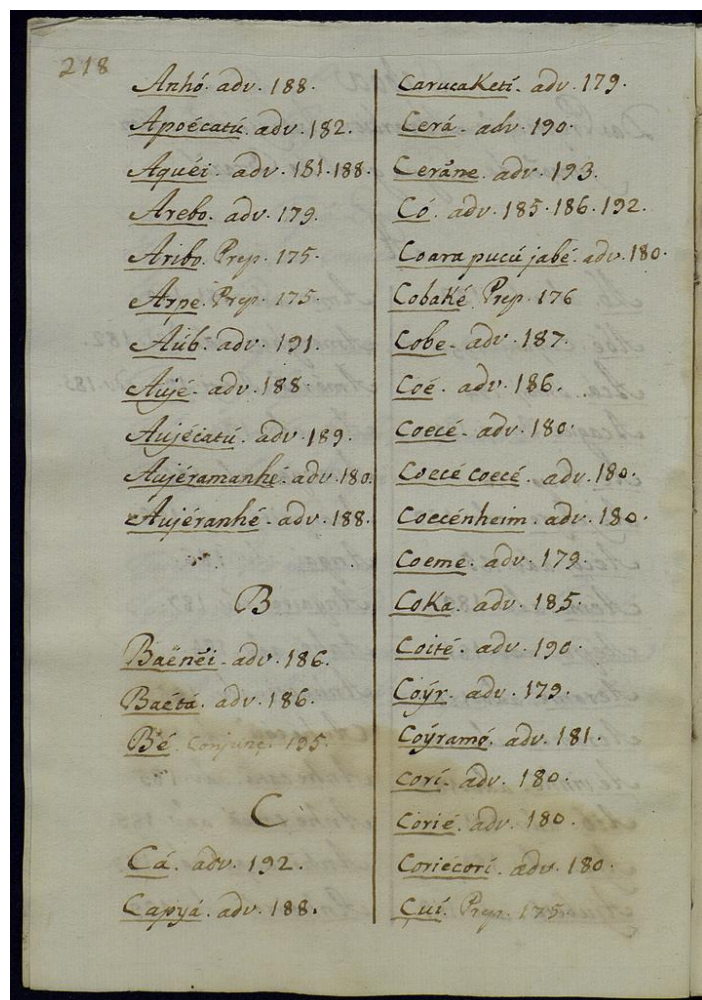 218
Anhó. adv. 188.
Apoécatú. adv. 182.
Aquéi. adv. 181. 188.
Arebo. adv. 179.
Aribo. Prep. 175.
Arpe. Prep. 175.
Aúb. adv. 191.
Aujé. adv. 188.
Aujécatú. adv. 189.
Aujéramanhé. adv. 180.
Aujéranhé. adv. 188.
B
Baënẽi. adv. 186.
Baétá. adv. 186.
Bé. Conjunç. 195.
C
Cá. adv. 192.
Capyá. adv. 188.
CarucaKetí. adv. 179.
Cerá. adv. 190.
Ceráne. adv. 193.
Có. adv. 185. 186. 192.
Coara pucú jabé. adv. 180.
CobaKé. Prep. 176
Cobe. adv. 187.
Coé. adv. 186.
Coecé. adv. 180.
Coecé coecé. adv. 180.
Coecénheim. adv. 180.
Coeme. adv. 179.
CoKa. adv. 185.
Coité. adv. 190.
Coýr. adv. 179.
Coýramo. adv. 181.
Corí. adv. 180.
Corié. adv. 180.
Coriécorí. adv. 180.
Cuí. Prep. 175.